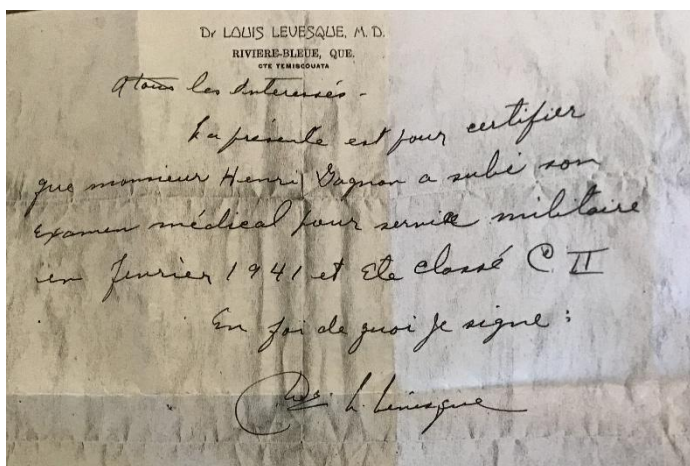 Dr LOUIS LEVESQUE, M. D.
RIVIERE-BLEUE, QUE.
CTE TEMISCOUATA
A tous les Interessés -
La présente est pour certifier
que monsieur Henri Gagnon a subi son
Examen médical pour service militaire
en fevrier 1941 et Ete classé C II
En foi de quoi Je signe :
L. Lévesque